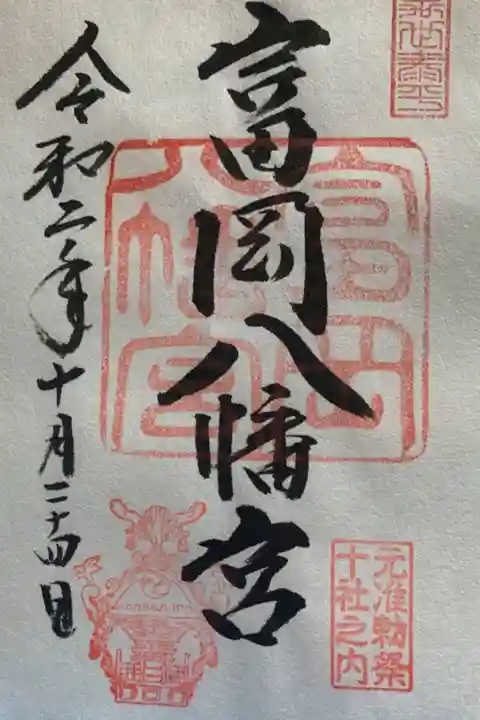 富岡八幡宮
富岡八幡宮
元准勅祭
十社之内
令和二年十月二十四日